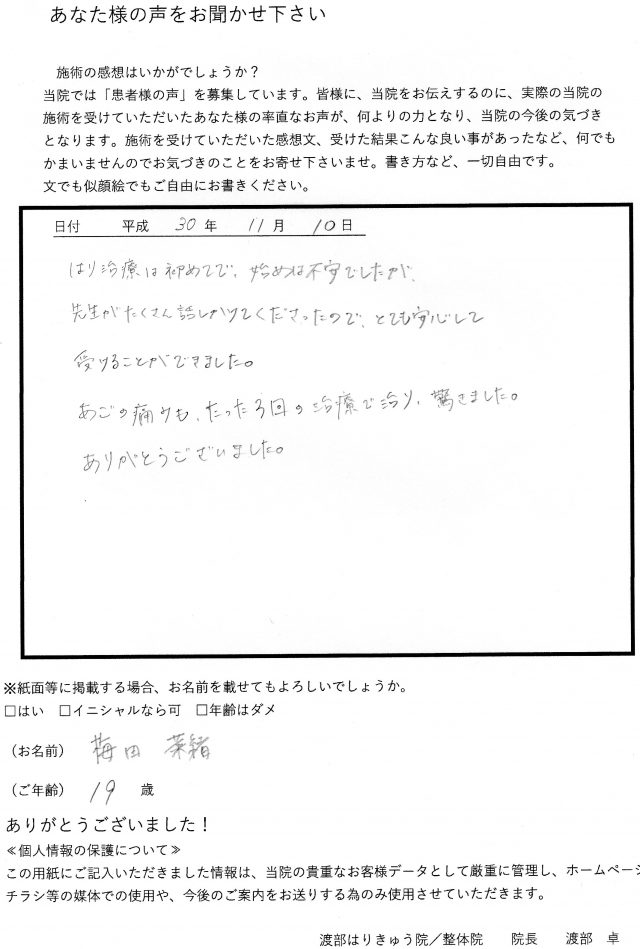 あなた様の声をお聞かせ下さい
施術の感想はいかがでしょうか?
当院では「患者様の声」を募集しています。皆様に、当院をお伝えするのに、実際の当院の
施術を受けていただいたあなた様の率直なお声が、何よりの力となり、当院の今後の気づき
となります。施術を受けていただいた感想文、受けた結果こんな良い事があったなど、何でも
かまいませんのでお気づきのことをお寄せ下さいませ。書き方など、一切自由です。
文でも似顔絵でもご自由にお書きください。
日付 平成 30 年 11 月 10 日
はり治療は初めてで、始めは不安でしたが、
先生がたくさん話しかけてくださったので、とても安心して
受けることができました。
あごの痛みも、たった3回の治療で治り、驚きました。
ありがとうございました。
※紙面等に掲載する場合、お名前を載せてもよろしいでしょうか。
□はい □イニシャルなら可 □年齢はダメ
(お名前) 梅田 菜緒
(ご年齢) 19 歳
ありがとうございました!
≪個人情報の保護について≫
この用紙にご記入いただきました情報は、当院の貴重なお客様データとして厳重に管理し、ホームページ
チラシ等の媒体での使用や、今後のご案内をお送りする為のみ使用させていただきます。
渡部はりきゅう院/整体院 院長 渡部 卓